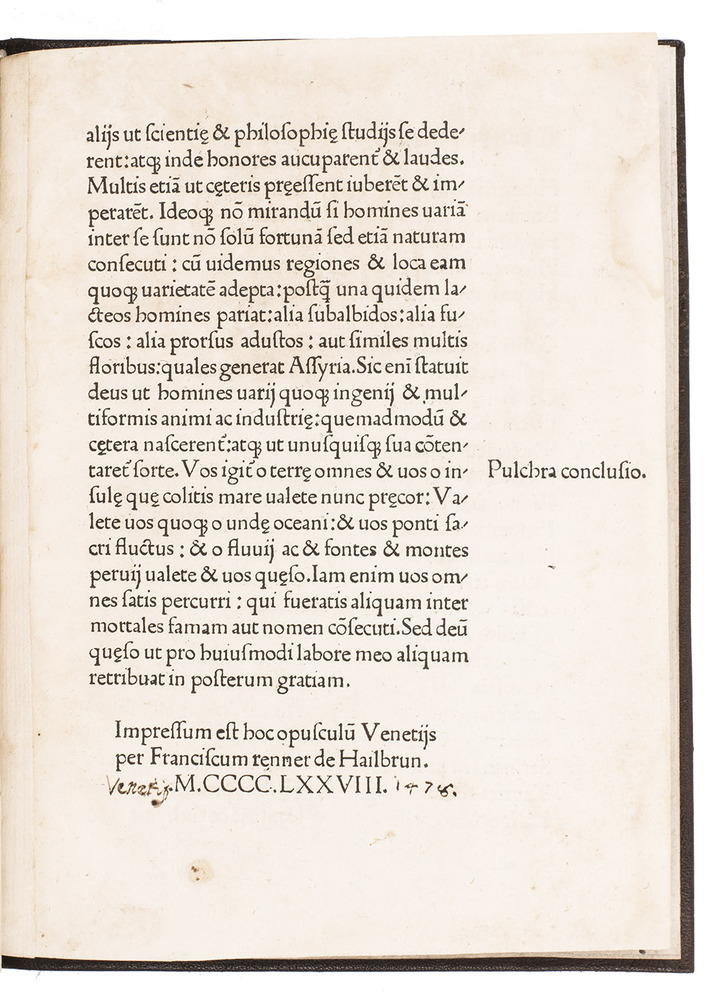 alijs ut ſcientię & philoſophię ſtudijs ſe dede⸗
rent:atqꝫ inde honores aucuparent̄ & laudes.
Multis etiā ut cęteris pręeſſent iuberēt & im⸗
perarēt. Ideoqꝫ nō mirandū ſi homines uariā
inter ſe ſunt nō ſolū fortunā ſed etiā naturam
conſecuti : cū uidemus regiones & loca eam
quoqꝫ uarietatē adepta:poſtq̄ una quidem la⸗
cteos homines pariat:alia ſubalbidos:alia fu⸗
ſcos : alia prorſus aduſtos : aut ſimiles multis
floribus:quales generat Aſſyria.Sic eni̅ ſtatuit
deus ut homines uarij quoqꝫ ingenij & mul⸗
tiformis animi ac induſtrię:quemadmodū &
cętera naſcerent̄:atqꝫ ut unuſquiſqꝫ ſua cōten⸗
taret̄ ſorte. Vos igit̄ o terrę omnes & uos o in⸗
ſulę quę colitis mare ualete nunc pręcor: Va⸗
lete uos quoqꝫ o undę oceani:& uos ponti ſa⸗
cri fluctus : & o fluuij ac & fontes & montes
peruij ualete & uos quęſo.Iam enim uos om⸗
nes ſatis percurri : qui fueratis aliquam inter
mortales famam aut nomen cōſecuti.Sed deū
quęſo ut pro huiuſmodi labore meo aliquam
retribuat in poſterum gratiam.
Pulchra concluſio.
Impreſſum eſt hoc opuſculū Venetijs
per Franciſcum renner de Hailbrun.
Venetijs.M.CCCC.LXXVIII. 1478.